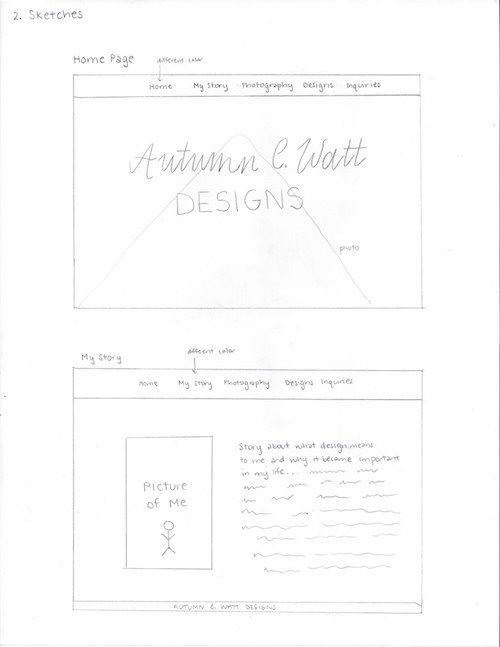 2. Sketches
Home Page
different color
Home My Story Photography Designs Inquiries
Autumn C. Watt
DESIGNS
photo
My Story
different color
Home My Story Photography Designs Inquiries
Story about what design means
to me and why it became important
in my life...
Picture
of Me
AUTUMN C. WATT DESIGNS